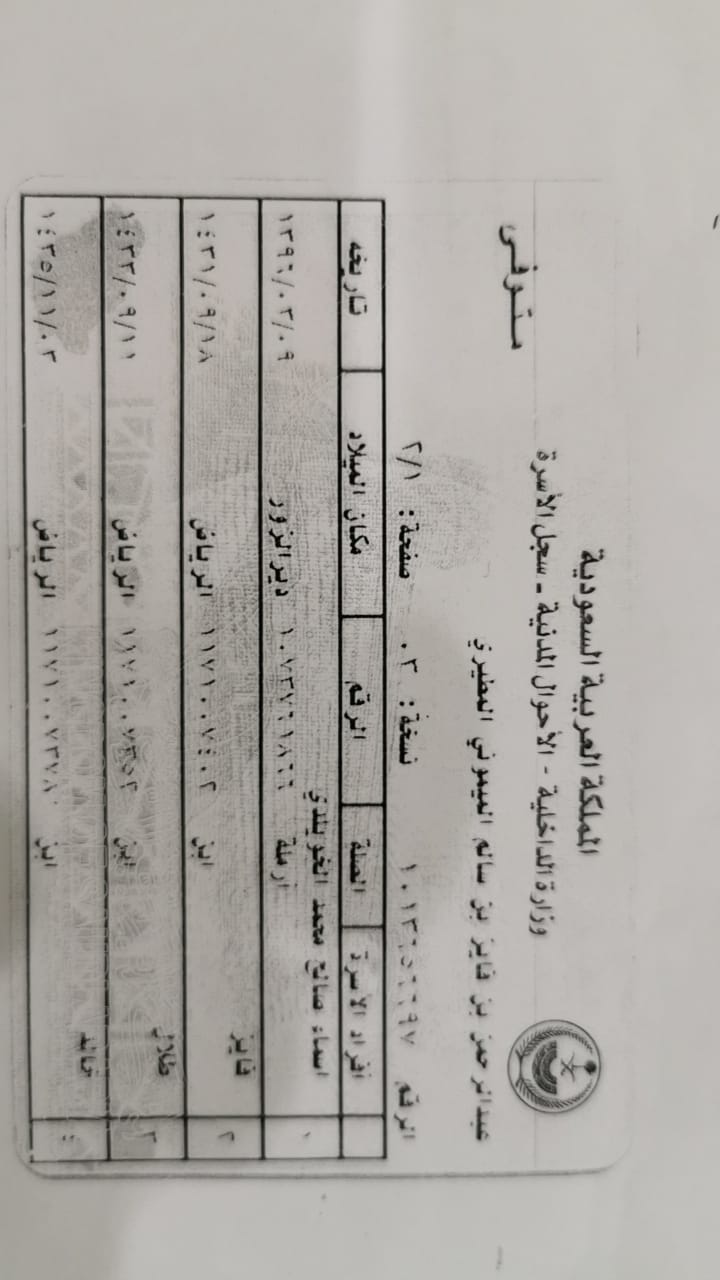 المملكة العربية السعودية
وزارة الداخلية - الأحوال المدنية - سجل الأسرة
متوفى
عبدالرحمن بن فايز بن سالم الميموني المطيري
الرقم نسخة: ٠٣ صفحة: ٢/١
أفراد الأسرة الصلة الرقم مكان الميلاد تاريخه
١ اسماء صالح محمد الخويلدي
ارملة ١٠٧٣٧٦١٨٦٦ ديرالزور ١٣٩٦/٠٣/٠٩
٢ فايز ابن ١١٧١٠٠٧٤٠٢ الرياض ١٤٣١/٠٩/١٨
٣ طلال ابن ١١٧١٠٠٧٣٥٢ الرياض ١٤٣٣/٠٩/١١
٤ خالد ابن ١١٧١٠٠٧٣٧٨ الرياض ١٤٣٥/١١/٠٣